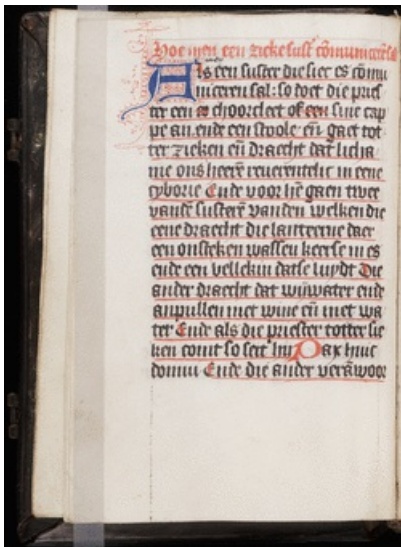 Hoe men een zieke sust cōmuniceē sal
Als een suster die siec es cōmu
niceren sal: so doet die pries
ter een choorcleet of een sine cap
pe an. ende een stoole. eñ gaet tot
ter zieken eñ draecht dat licha
me ons heerē reuerentelic in eene
cyborie Ende voor hē gaen twee
vandē susterē vanden welken die
eene draecht die lanteerne daer
een onsteken wassen keerse in es
ende een bellekin datse luydt Die
ander draecht dat wiwater ende
anpullen met wine eñ met wa
ter Ende als die priester totter sie
ken comt so seit hi Pax huic
domui Ende die ander verāwoor